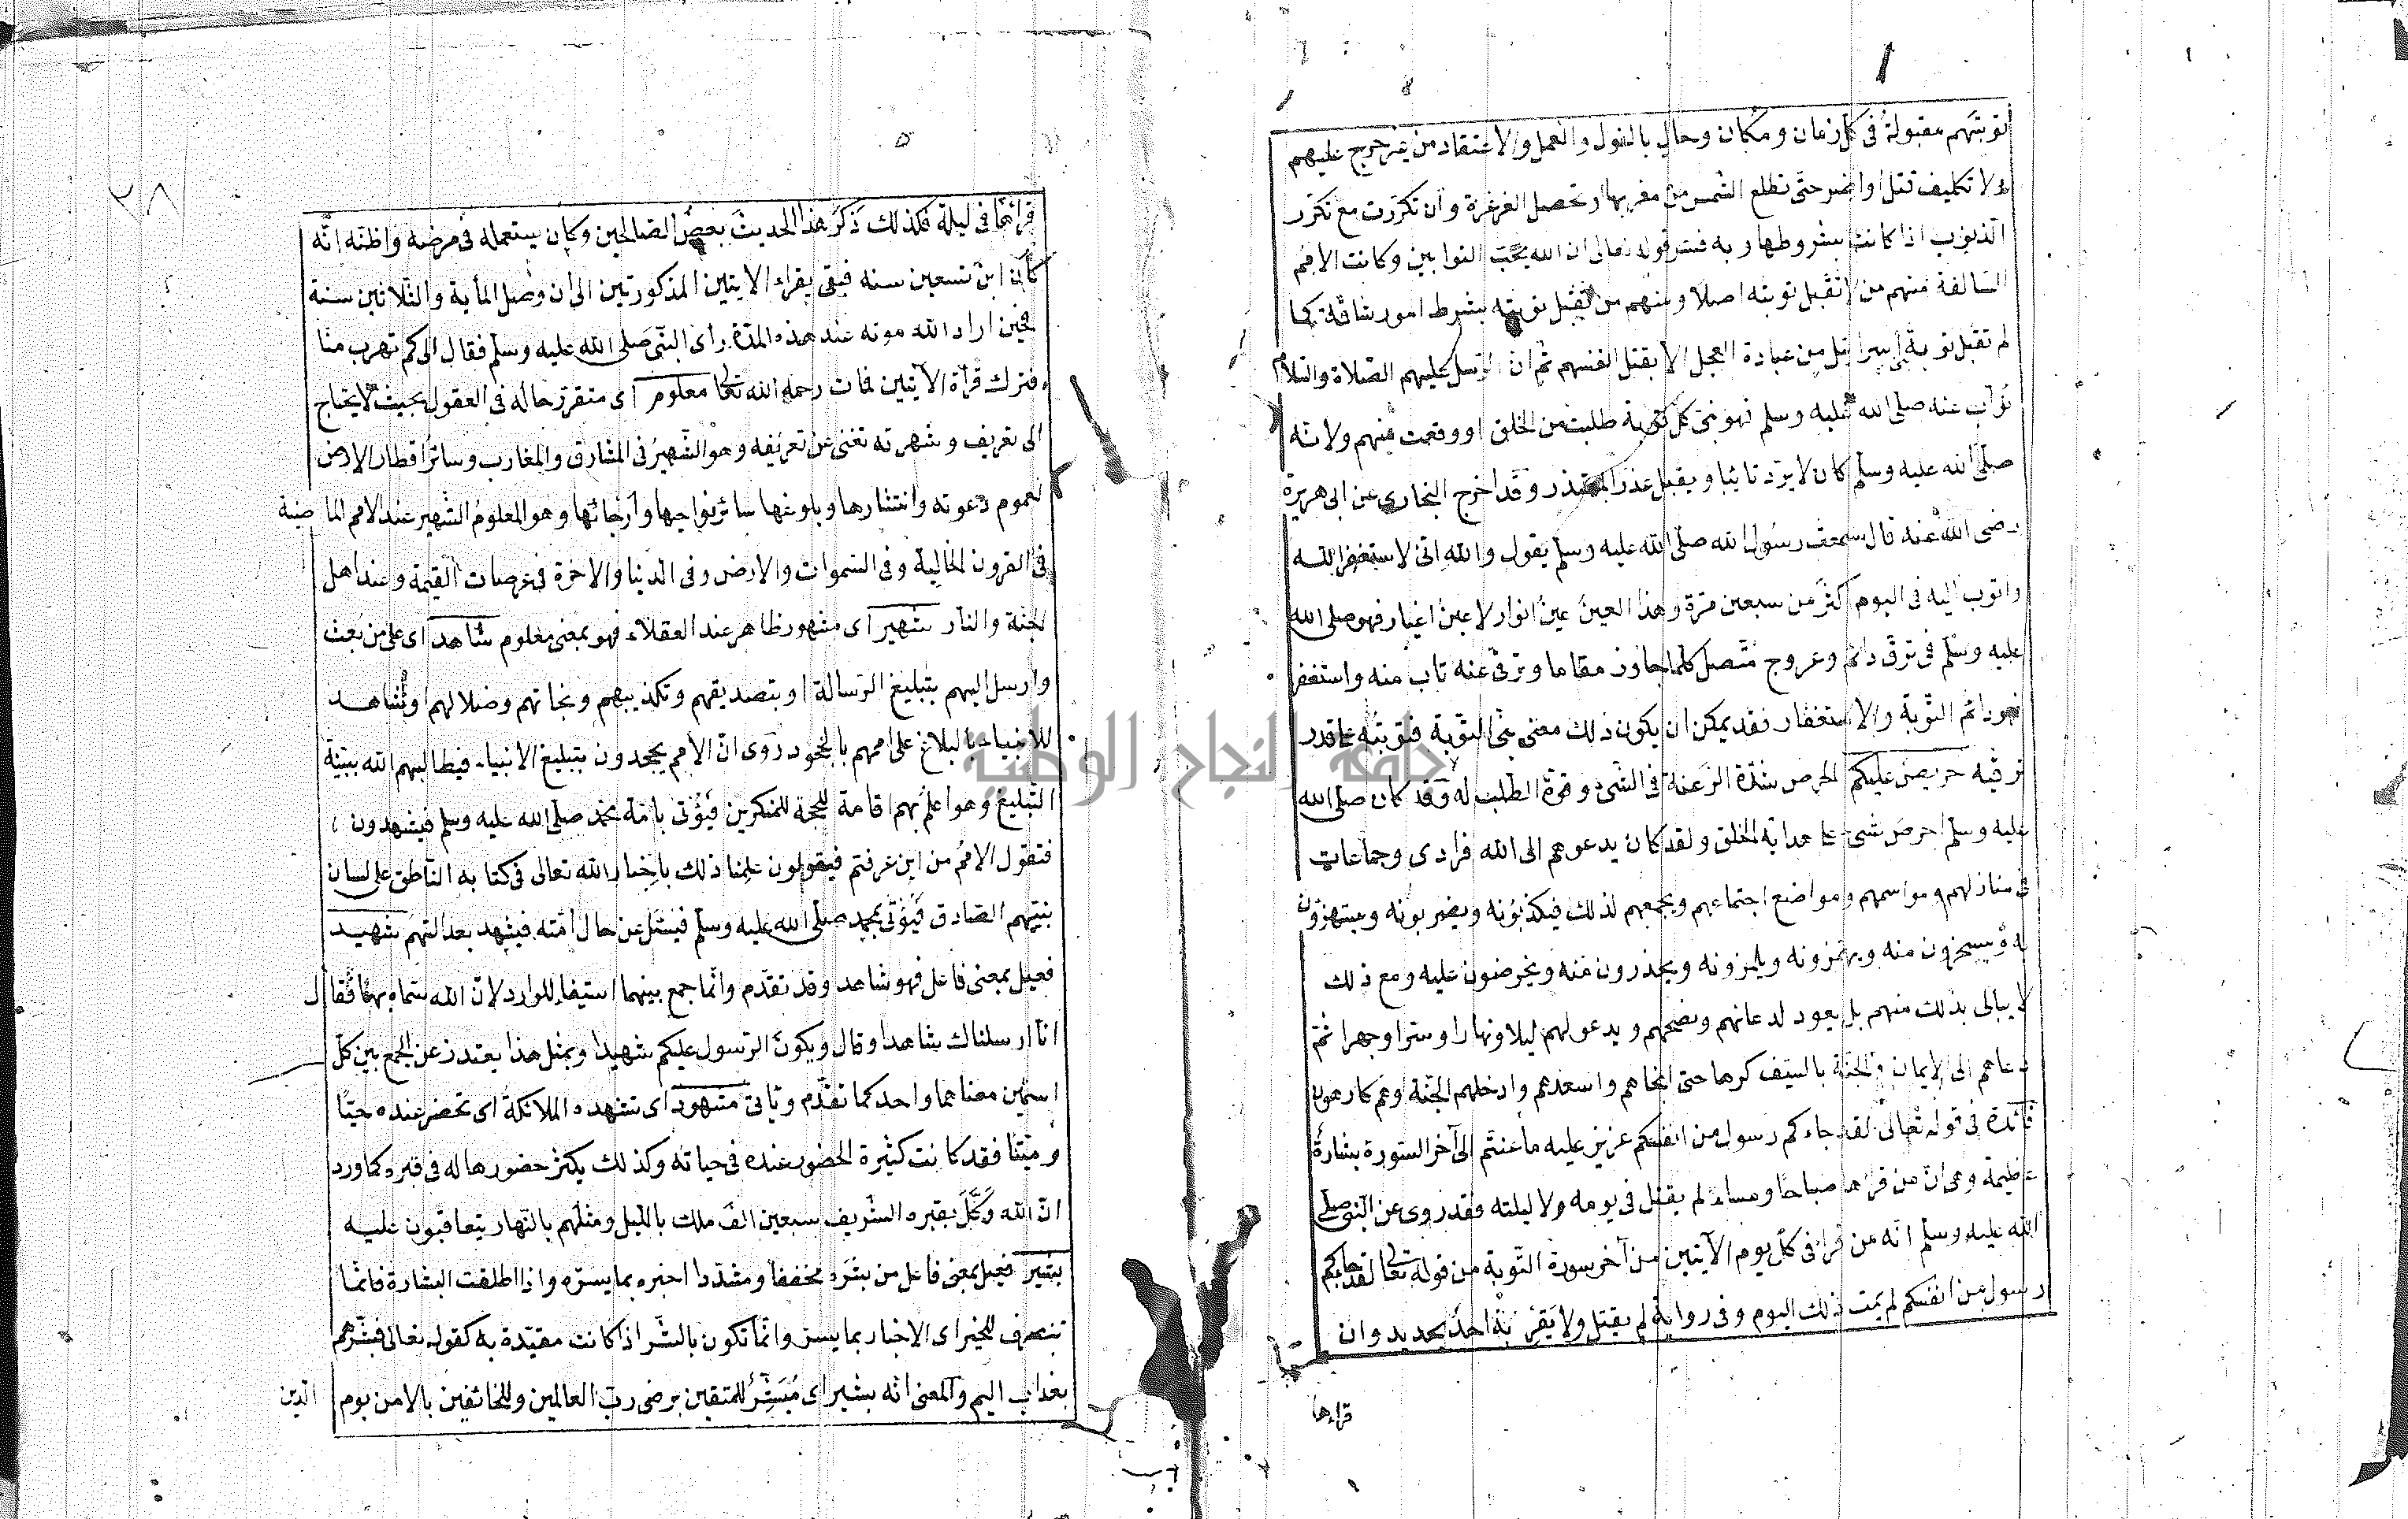 توبتهم مقبولة في كل زمان ومكان وحال بالقول والعمل والاعتقاد من غير حرج عليهم
ولا تكليف قتل او اصر حتى تطلع الشمس من مغربها او تحصل الغرغرة وان تكررت مع تكرر
الذنوب اذا كانت بشروطها وبه فسر قوله تعالى ان الله يحب التوابين وكانت الامم
السالفة منهم من لا تقبل توبته اصلا ومنهم من تقبل توبته بشرط امور شاقة كما
لم تقبل توبة بني اسرائيل من عبادة العجل الا بقتل انفسهم ثم ان الرسل عليهم الصلاة والسلام
نواب عنه صلى الله عليه وسلم فهو نبي كل توبة طلبت من الخلق او وقعت منهم ولانه
صلى الله عليه وسلم كان لا يرد تائبا ويقبل عذر المعتذر وقد اخرج البخاري عن ابي هريرة
رضي الله عنه قال سمعت رسول الله صلى الله عليه وسلم يقول والله اني لاستغفر الله
واتوب اليه في اليوم اكثر من سبعين مرة وهذا الغين غين انوار لا غين اغيار فهو صلى الله
عليه وسلم في ترق دائم وعروج متصل كلما جاوز مقاما وترقى عنه تاب منه واستغفر
فهو دائم التوبة والاستغفار فقد يمكن ان يكون ذلك معنى نبي التوبة فتوبته على قدر
ترقيه حريص عليكم الحرص شدة الرغبة في الشئ وقوة الطلب له وقد كان صلى الله
عليه وسلم احرص شئ على هداية الخلق ولقد كان يدعوهم الى الله فرادى وجماعات
في منازلهم ومواسمهم ومواضع اجتماعهم ويجمعهم لذلك فيكذبونه ويضربونه ويستهزؤن
به ويسخرون منه ويهمزونه ويلمزونه ويحذرون منه ويحرضون عليه ومع ذلك
لا يبالي بذلك منهم بل يعود لدعائهم ونصحهم ويدعو لهم ليلا ونهارا وسرا وجهرا ثم
دعاهم الى الايمان والجنة بالسيف كرها حتى انجاهم واسعدهم وادخلهم الجنة وهم كارهون
فائدة في قوله تعالى لقد جاءكم رسول من انفسكم عزيز عليه ما عنتم الى آخر السورة بشارة
عظيمة وهي ان من قرأها صباحا ومساء لم يقتل في يومه ولا ليلته فقد روي عن النبي صلى
الله عليه وسلم انه من قرأ في كل يوم الآيتين من آخر سورة التوبة من قوله تعالى لقد جاءكم
رسول من انفسكم لم يمت ذلك اليوم وفي رواية لم يقتل ولا يقربه احد بحديد وان
قراءها
٢٨
قرائهما في ليلة فكذلك ذكر هذا الحديث بعض الصالحين وكان يستعمله في مرضه واظنه انه
كان ابن تسعين سنه فبقي يقراء الايتين المذكورتين الى ان وصل المأية والثلاثين سنة
فحين اراد الله موته عند هذه المدة رأى النبي صلى الله عليه وسلم فقال الى كم تهرب منا
فترك قرآة الآيتين فمات رحمه الله تعالى معلوم اى متقرر حاله في العقول بحيث لا يحتاج
الى تعريف وشهرته تغني عن تعريفه وهو الشهير في المشارق والمغارب وسائر اقطار الارض
لعموم دعوته وانتشارها وبلوغها سائر نواحيها وأرجائها وهو المعلوم الشهير عند الامم الماضية
في القرون الخالية وفي السموات والارض وفي الدنيا والاخرة في عرصات القيمة وعند اهل
الجنة والنار شهير اى مشهور ظاهر عند العقلاء فهو بمعنى معلوم شاهد اى على من بعث
وارسل اليهم بتبليغ الرسالة او بتصديقهم وتكذيبهم ونجاتهم وضلالهم او شاهد
للانبياء بالبلاغ على اممهم بالجحود روى ان الامم يجحدون بتبليغ الانبياء فيطالبهم الله ببينة
التبليغ وهو اعلم بهم اقامة للحجة للمنكرين فيؤتى بامة محمد صلى الله عليه وسلم فيشهدون
فتقول الامم من اين عرفتم فيقولون علمنا ذلك باخبار الله تعالى في كتابه الناطق على لسان
نبيهم الصادق فيؤتى بمحمد صلى الله عليه وسلم فيسئل عن حال امته فيشهد بعدالتهم شهيد
فعيل بمعنى فاعل فهو شاهد وقد تقدم وانما جمع بينهما استيفاء للوارد لان الله سماه بهما فقال
انا ارسلناك شاهدا وقال ويكون الرسول عليكم شهيدا وبمثل هذا يعتذر عن الجمع بين كل
اسمين معناهما واحد كما تقدم وياتي مشهود اى تشهده الملائكة اى تحضر عنده حيا
وميتا فقد كانت كثيرة الحضور عنده في حياته وكذلك يكثر حضورها له في قبره كما ورد
ان الله وكل بقبره الشريف سبعين الف ملك بالليل ومثلهم بالنهار يتعاقبون عليه
بشير فعيل بمعنى فاعل من بشره مخففا ومشددا اخبره بما يسره واذا اطلقت البشارة فانما
تنصرف للخير اى الاخبار بما يسر وانما تكون بالشر اذا كانت مقيدة به كقوله تعالى فبشرهم
بعذاب اليم والمعنى انه بشير اى مبشر للمتقين برضى رب العالمين وللخائفين بالامن يوم
الدين
جامعة النجاح الوطنية